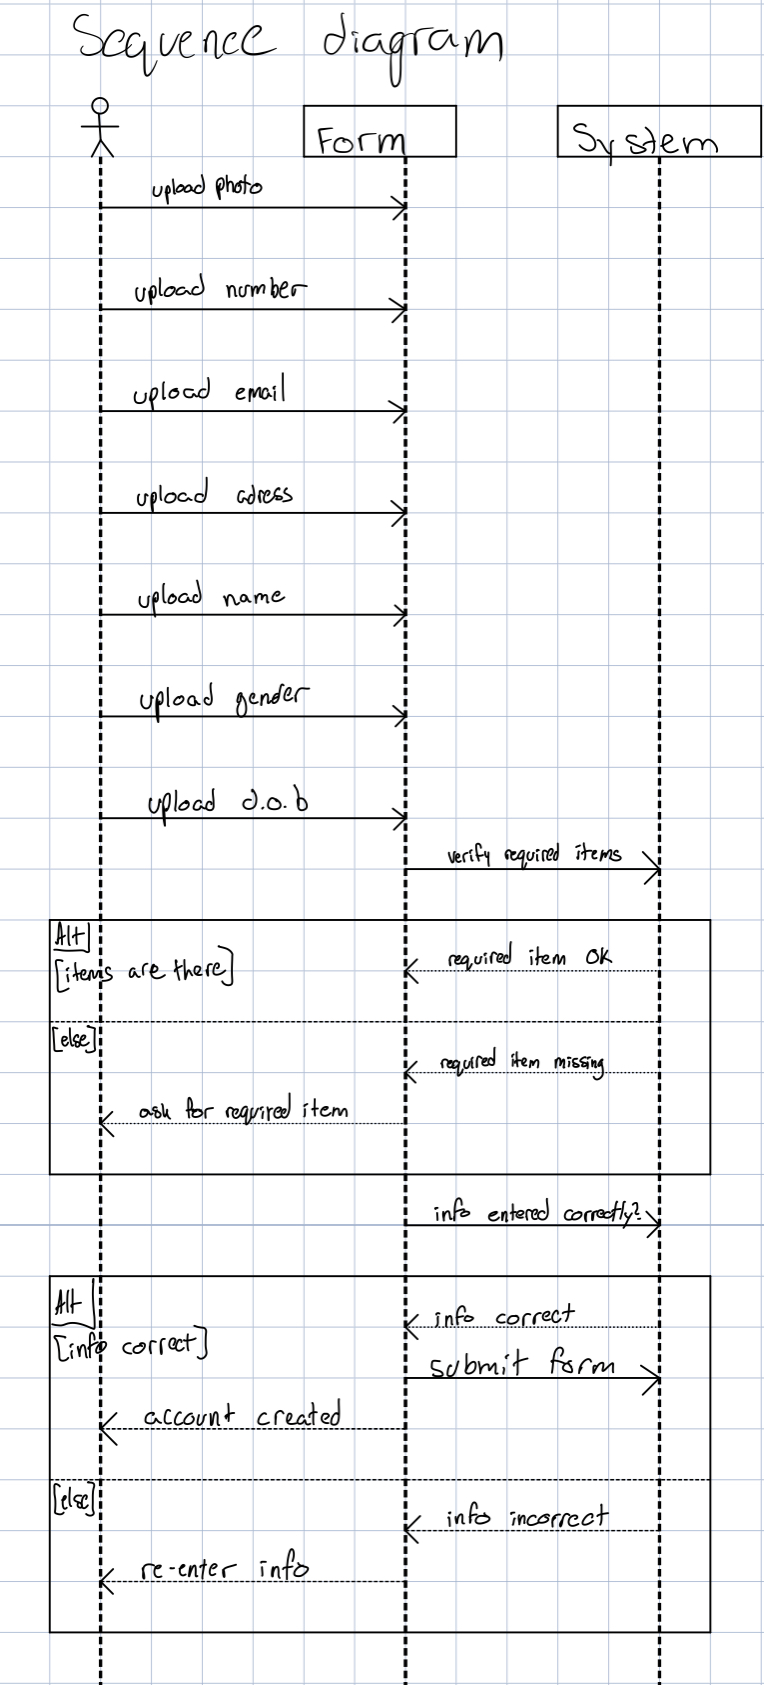 Sequence diagram
Form
System
upload photo
upload number
upload email
upload adress
upload name
upload gender
upload d.o.b
verify required items
Alt
[items are there]
required item OK
[else]
required item missing
ask for required item
info entered correctly?
Alt
info correct
[info correct]
submit form
account created
[else]
info incorrect
re-enter info